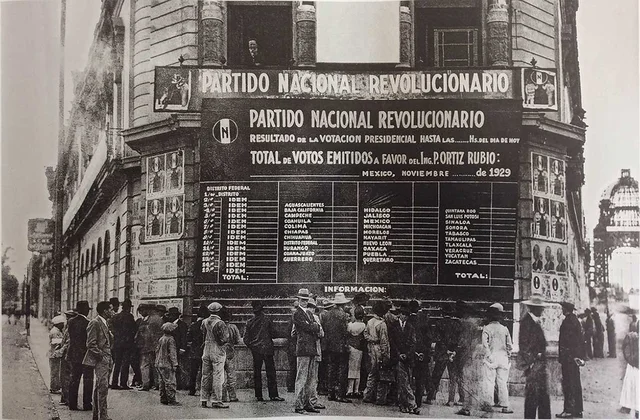 PARTIDO NACIONAL REVOLUCIONARIO
N
PARTIDO NACIONAL REVOLUCIONARIO
RESULTADO DE LA VOTACION PRESIDENCIAL HASTA LAS.......HS. DEL DIA DE HOY
TOTAL DE VOTOS EMITIDOS A FAVOR DEL ING. P. ORTIZ RUBIO:
MEXICO, NOVIEMBRE ........... DE 1929
DISTRITO FEDERAL
1/er. DISTRITO
IDEM
IDEM
IDEM
IDEM
IDEM
IDEM
IDEM
IDEM
IDEM
IDEM
TOTAL:
AGUASCALIENTES
BAJA CALIFORNIA
CAMPECHE
COAHUILA
COLIMA
CHIAPAS
CHIHUAHUA
DISTRITO FEDERAL
DURANGO
GUANAJUATO
GUERRERO
HIDALGO
JALISCO
MEXICO
MICHOACAN
MORELOS
NAYARIT
NUEVO LEON
OAXACA
PUEBLA
QUERETARO
QUINTANA ROO
SAN LUIS POTOSI
SINALOA
SONORA
TABASCO
TAMAULIPAS
TLAXCALA
VERACRUZ
YUCATAN
ZACATECAS
TOTAL:
INFORMACION: